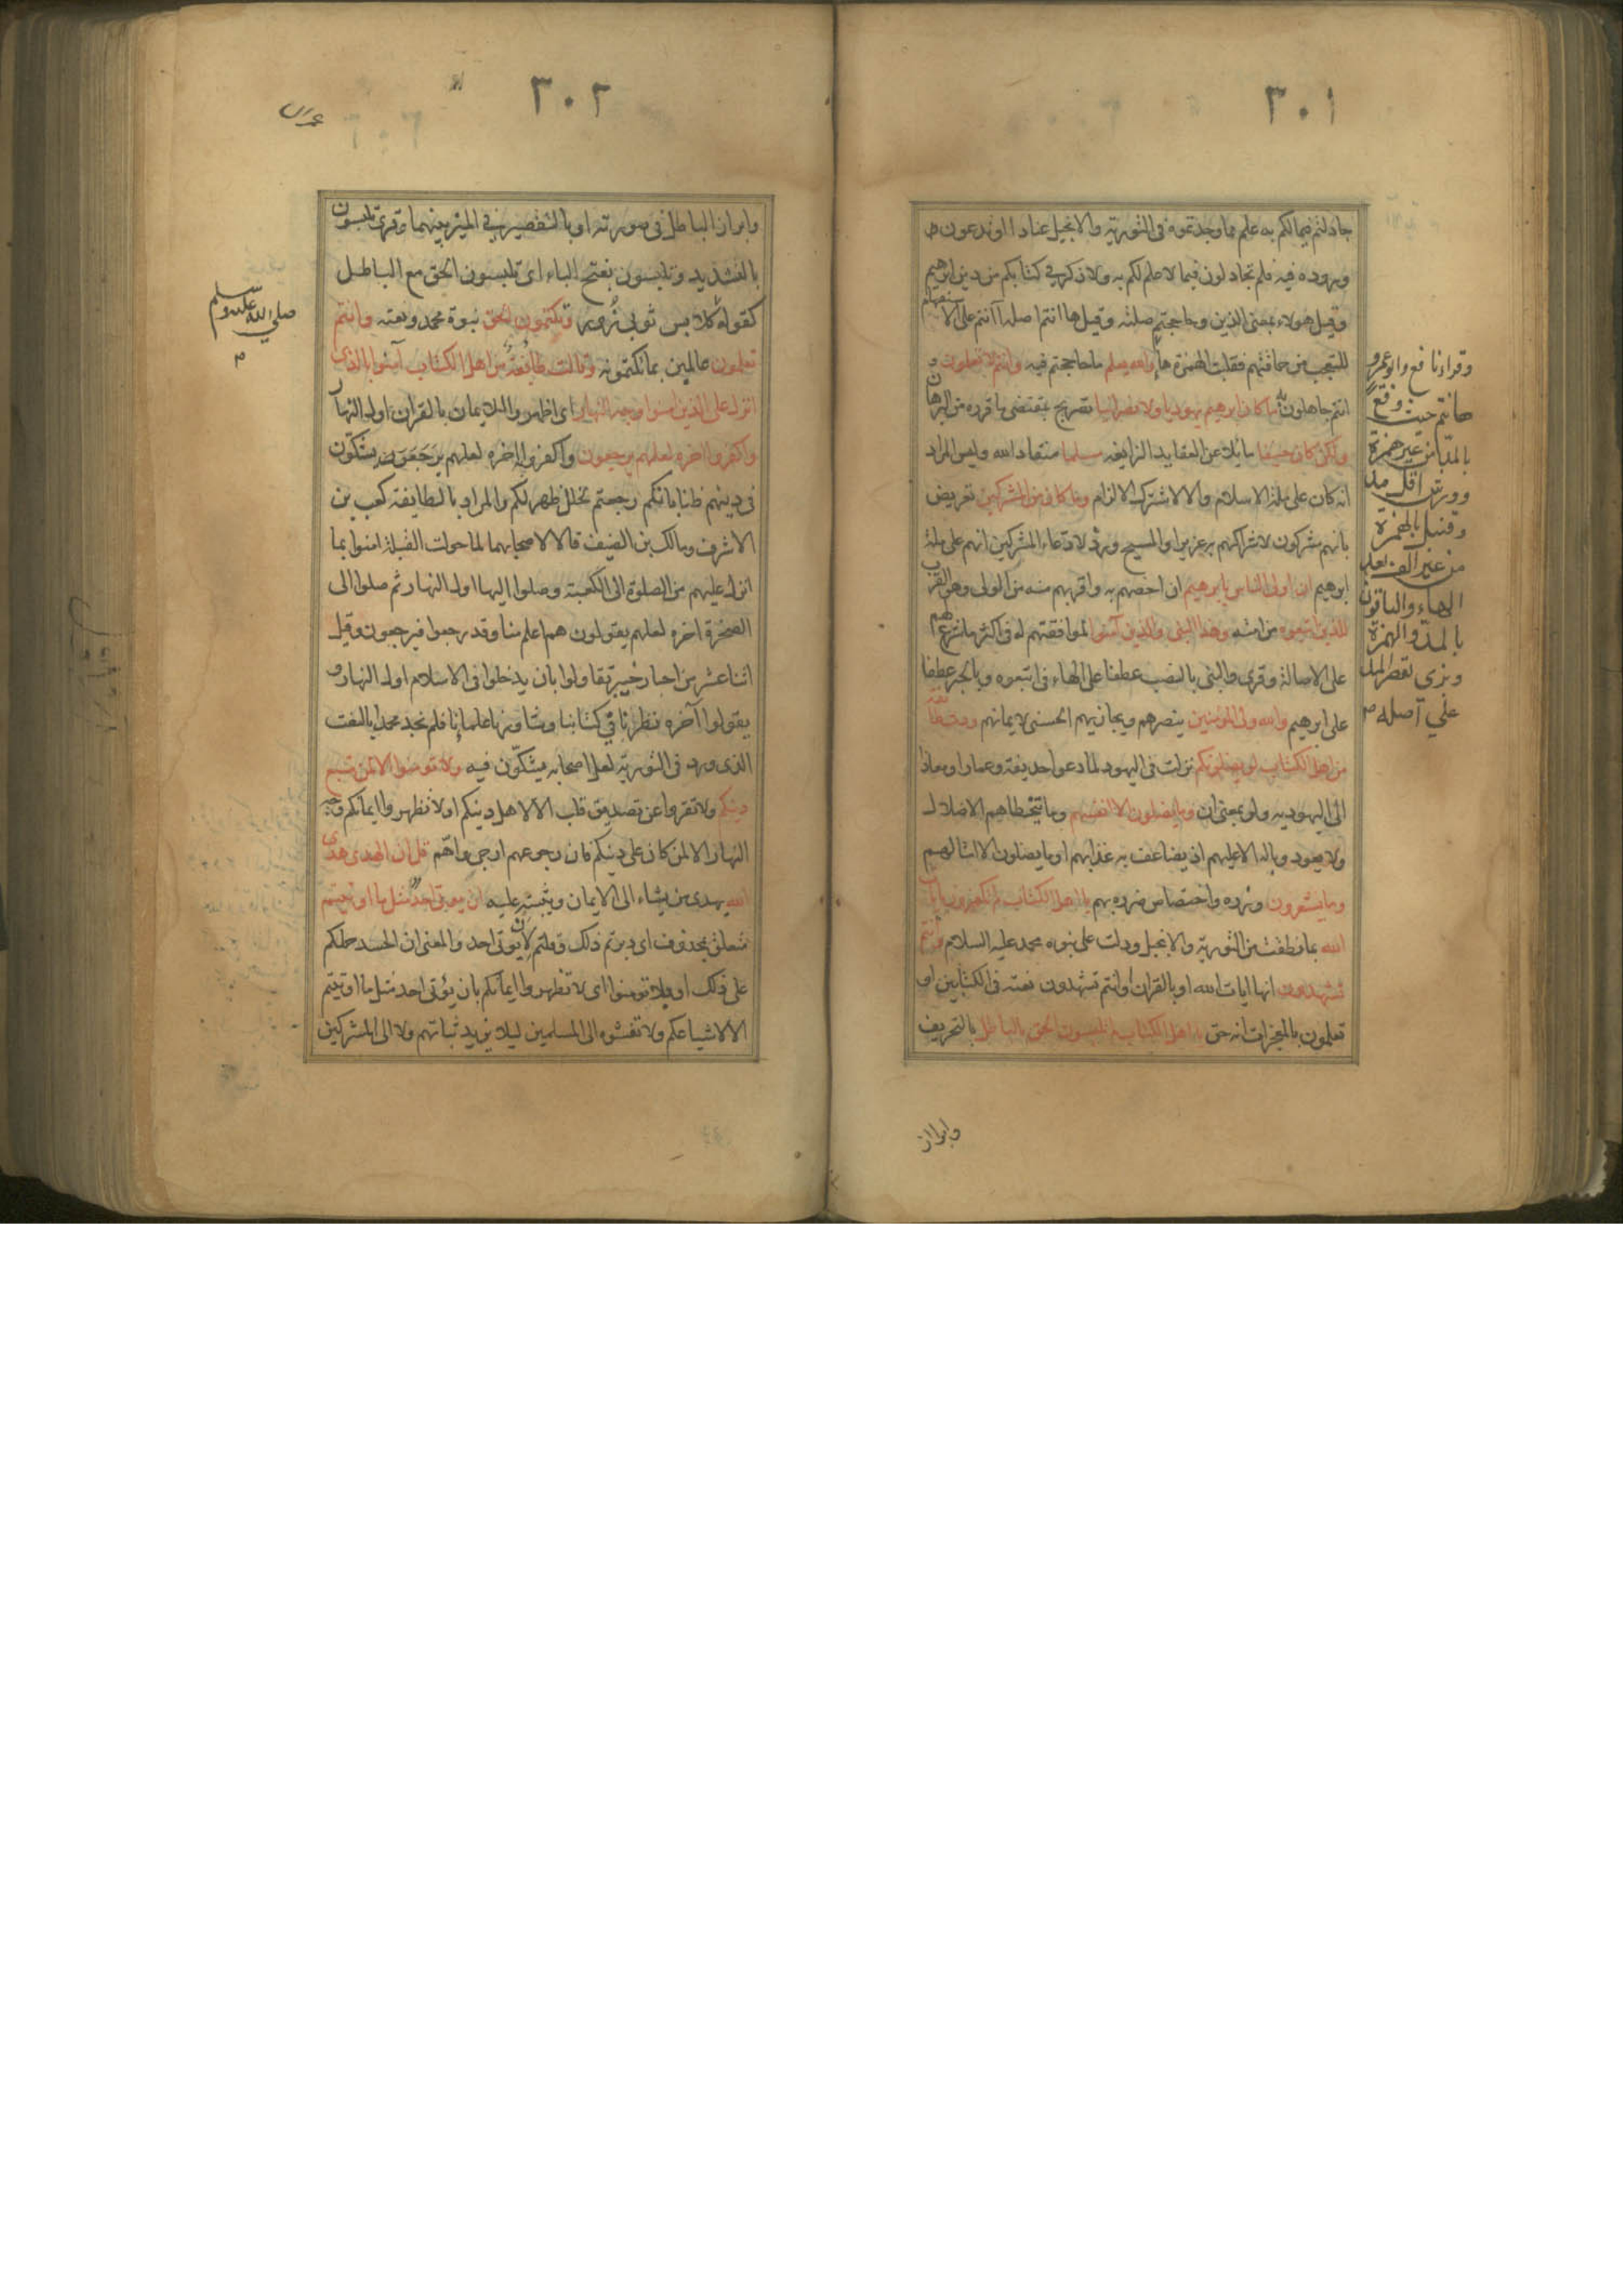 ٣٠١
جادلتم فيما لكم به علم مما وجدتموه فى التورية والانجيل عنادا او تدعون
وروده فيه فلم تجادلون فيما لا علم لكم به ولا ذكر فى كتابكم من دين ابرهيم
وقيل هولاء بمعنى الذين وحاججتم صلته وقيل ها انتم اصله أأنتم على الاستفهام
للتعجب من حماقتهم فقلبت الهمزة هاء والله يعلم ما حاججتم فيه وانتم لا تعلمون و
انتم جاهلون به ما كان ابرهيم يهوديا ولا نصرانيا تصريح بمقتضى ما قرره من البرهان
ولكن كان حنيفا مايلا عن العقايد الزايغه مسلما منقادا لله وليس المراد
انه كان على ملة الاسلام والا لاشترك الالزام وما كان من المشركين تعريض
بانهم مشركون لاشراكهم به عزيرا والمسيح ورد لادعاء المشركين انهم على ملة
ابرهيم ان اولى الناس بابرهيم ان اخصهم به واقربهم منه من الولى وهو القرب
للذين اتبعوه من امته وهذا النبى والذين آمنوا لموافقتهم له فى اكثر ما شرع لهم
على الاصالة وقرى والنبى بالنصب عطفا على الهاء فى اتبعوه وبالجر عطفا
على ابرهيم والله ولى المؤمنين ينصرهم ويجازيهم الحسنى لايمانهم ودت طائفة
من اهل الكتاب لو يضلونكم نزلت فى اليهود لما دعوا حذيفة وعمارا ومعاذا
الى اليهوديه ولو بمعنى ان وما يضلون الا انفسهم وما يتخطاهم الاضلال
ولا يعود وباله الا عليهم اذ يضاعف به عذابهم او ما يضلون الا امثالهم
وما يشعرون وزره واختصاص ضرره بهم يا اهل الكتاب لم تكفرون بايات
الله بما نطقت من التورية والانجيل ودلت على نبوه محمد عليه السلام وانتم
تشهدون انها ايات الله او بالقران وانتم تشهدون نعته فى الكتابين او
تعلمون بالمعجزات انه حق يا اهل الكتاب لم تلبسون الحق بالباطل بالتحريف
وابراز
وقراء نافع وابو عمرو
هانتم حيث وقع
بالمد من غير همزة
وورش اقل مدا
وقنبل بالهمزة
من غير الف بعد
الهاء والباقون
بالمد والهمزة
وبزى بقصر المد
على اصله
٣٠٢
عمران
وابراز الباطل فى صورته او بالتقصير فى الميز بينهما وقرى تلبسون
بالتشديد وتلبسون بفتح الباء اى تلبسون الحق مع الباطل
كقوله كلابس ثوبى زور وتكتمون الحق نبوة محمد ونعته وانتم
تعلمون عالمين بما تكتمونه وقالت طايفة من اهل الكتاب آمنوا بالذى
انزل على الذين آمنوا وجه النهار اى اظهروا الايمان بالقران اول النهار
واكفروا اخره لعلهم يرجعون واكفروا به اخره لعلهم يشكون
فى دينهم ظنا بانكم رجعتم لخلل ظهر لكم والمراد بالطايفة كعب بن
الاشرف ومالك بن الضيف قالا لاصحابهما لما حولت القبلة امنوا بما
انزل عليهم من الصلوة الى الكعبة وصلوا اليها اول النهار ثم صلوا الى
الصخرة اخره لعلهم يقولون هم اعلم منا وقد رجعوا فيرجعون وقيل
اثنا عشر من احبار خيبر تقاولوا بان يدخلوا فى الاسلام اول النهار و
يقولوا آخره نظرنا فى كتابنا وشاورنا علمائنا فلم نجد محمدا بالنعت
الذى ورد فى التورية لعل اصحابه يشكون فيه ولا تومنوا الا لمن تبع
دينكم ولا تقروا عن تصديق قلب الا لاهل دينكم او لا تظهروا ايمانكم وجه
النهار الا لمن كان على دينكم فان رجوعهم ارجى واهم قل ان الهدى هدى
الله يهدى من يشاء الى الايمان ويثبته عليه ان يوتى احد مثل ما اوتيتم
متعلق بمحذوف اى دبرتم ذلك وقلتم لان يوتى احد والمعنى ان الحسد حملكم
على ذلك او بلا تومنوا اى لا تظهروا ايمانكم بان يؤتى احد مثل ما اوتيتم
الا لاشياعكم ولا تفشوه الى المسلمين ليلا يزيد ثباتهم ولا الى المشركين
صلى الله عليه وسلم